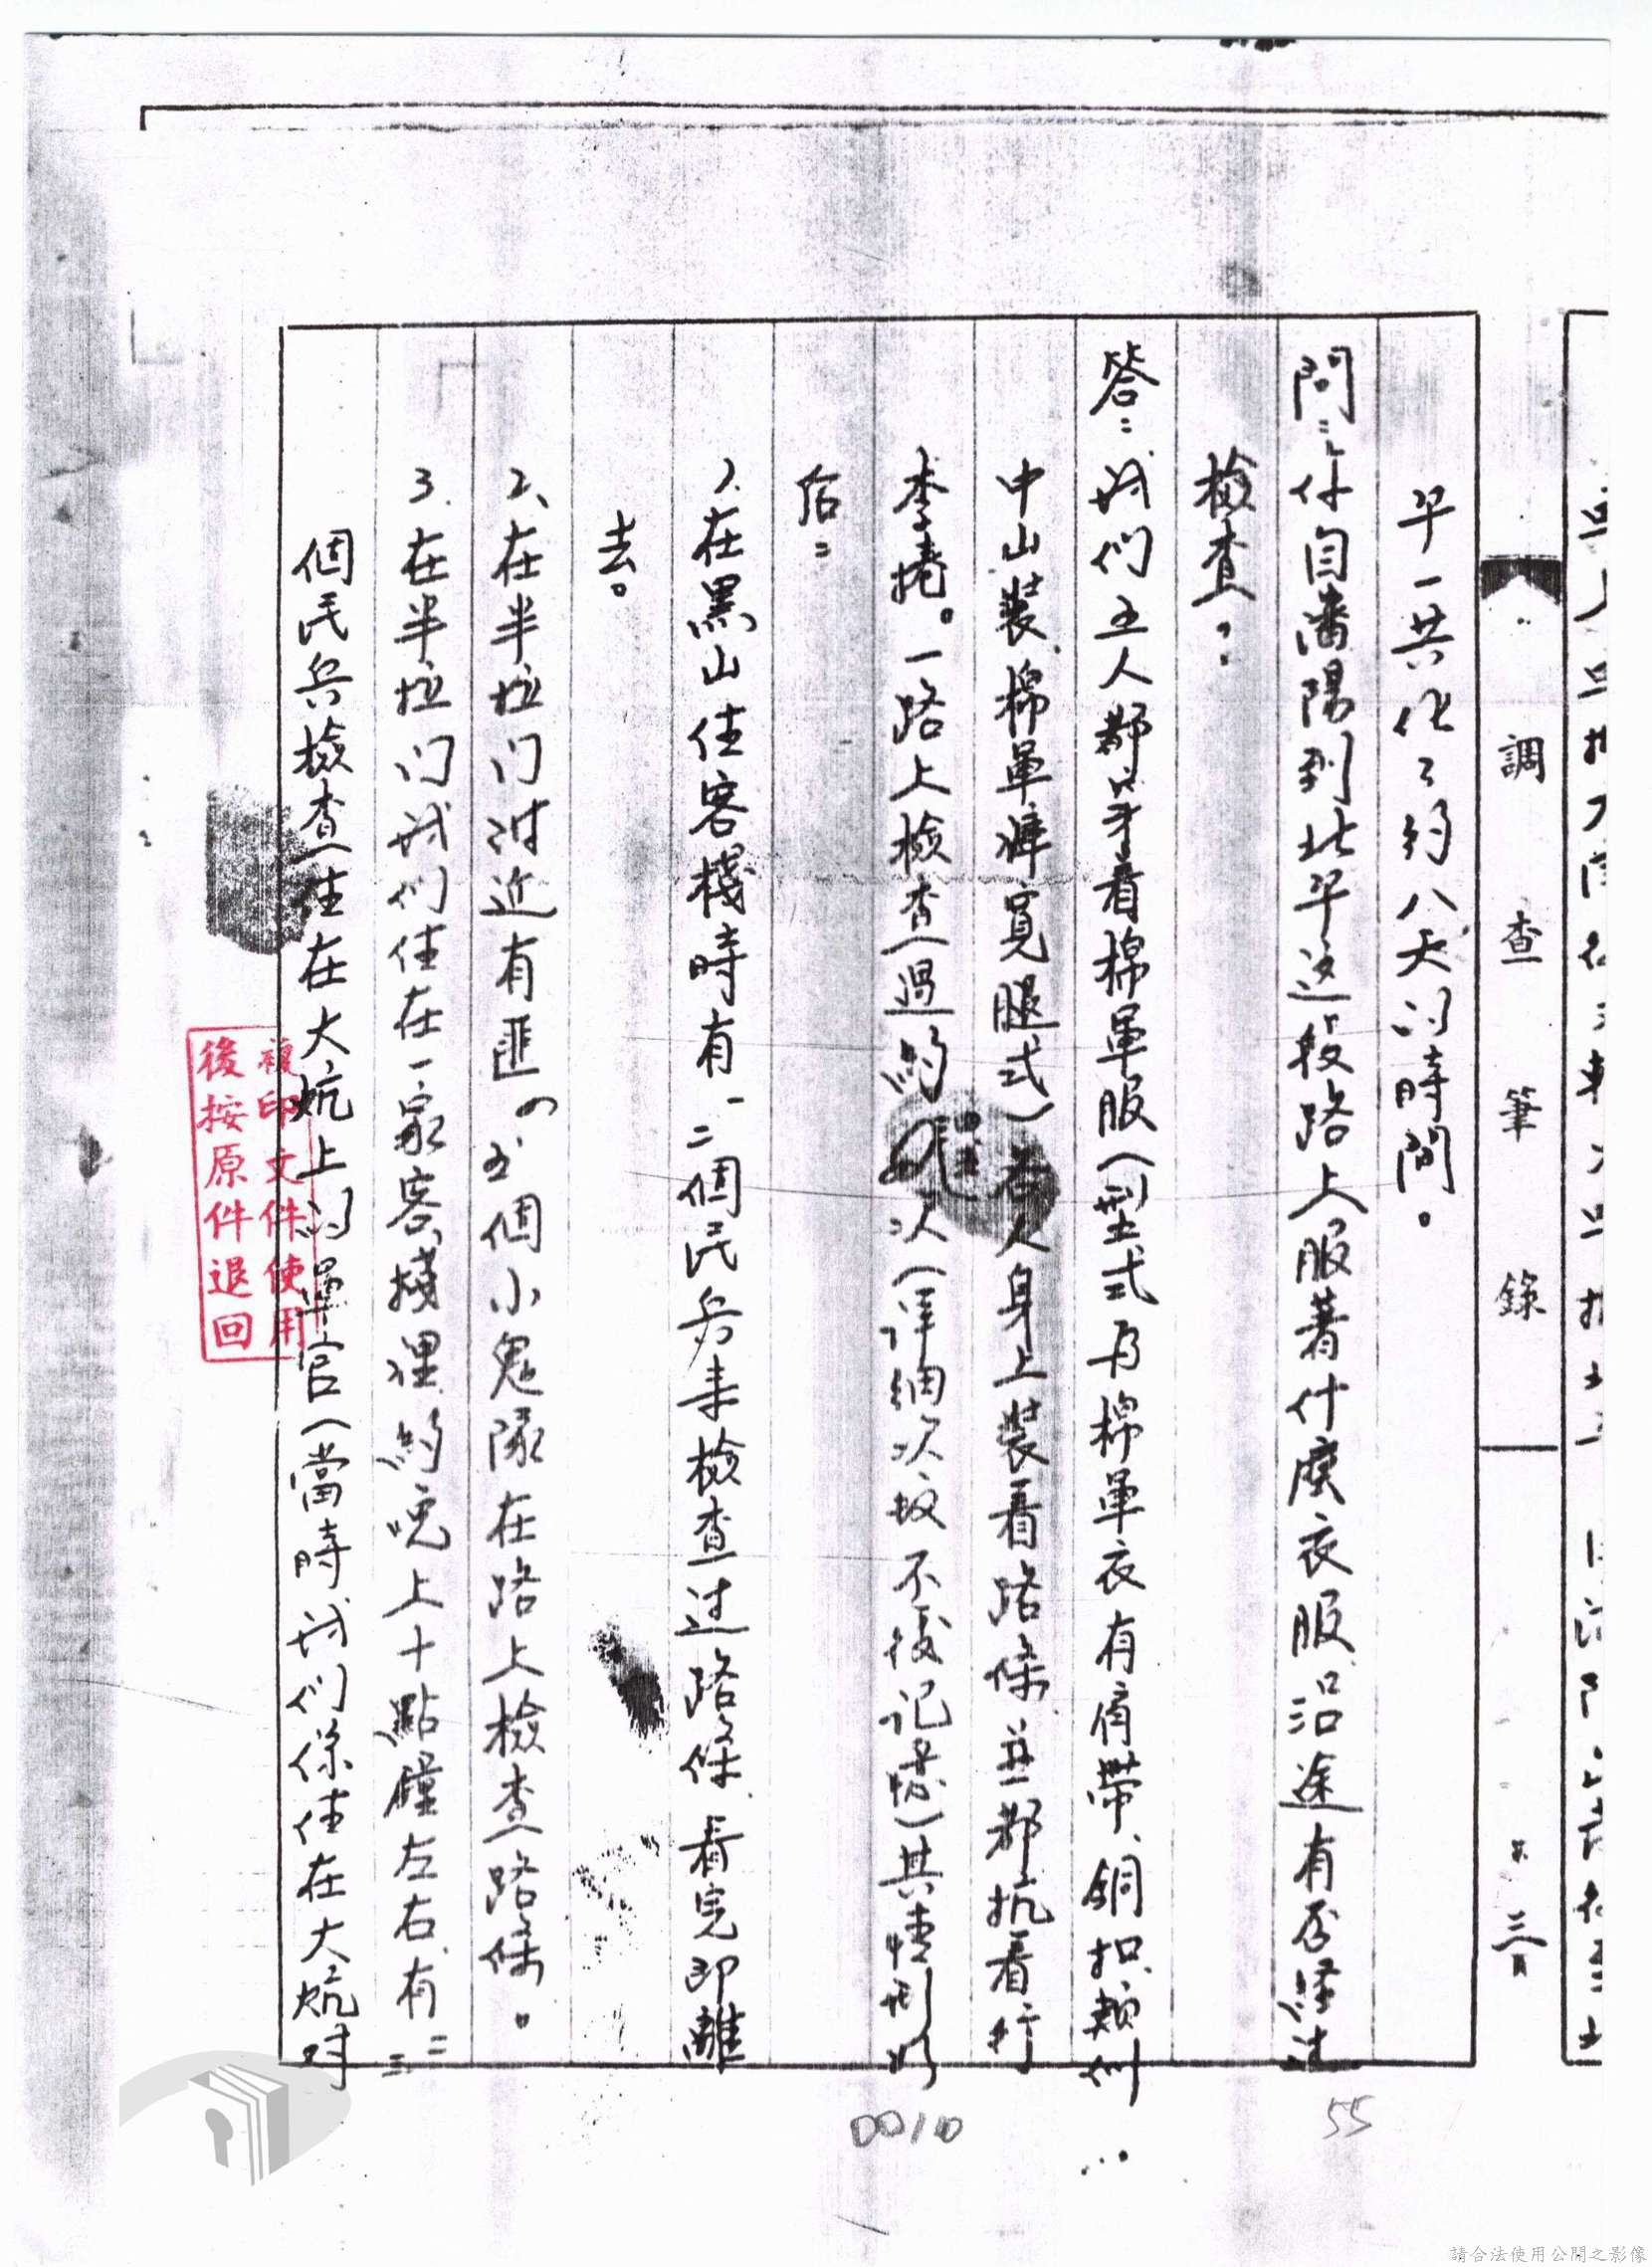 調查筆錄
平一共化了約八天的時間。
問:你自瀋陽到北平这段路上服著什麼衣服沿途有否經过
檢查?
答:我们五人都穿着棉軍服(型式及棉軍衣有肩帶、銅扣類似
中山裝棉軍褲寬腿式)各人身上裝着路條並都抗着行
李捲。一路上檢查過約次(详细次放不復记憶)其情形如
后:
1.在黑山住客棧時有一二個民兵来檢查过路條看完即離
去。
2、在半拉门附近有匪四五個小鬼隊在路上檢查路條。
3.在半拉门我们住在一家客棧裡約晚上十點鐘左右有二三
個民兵檢查住在大炕上的軍官(當時我们係住在大炕对
複印文件使用
後按原件退回
0010
55
請合法使用公開之影像